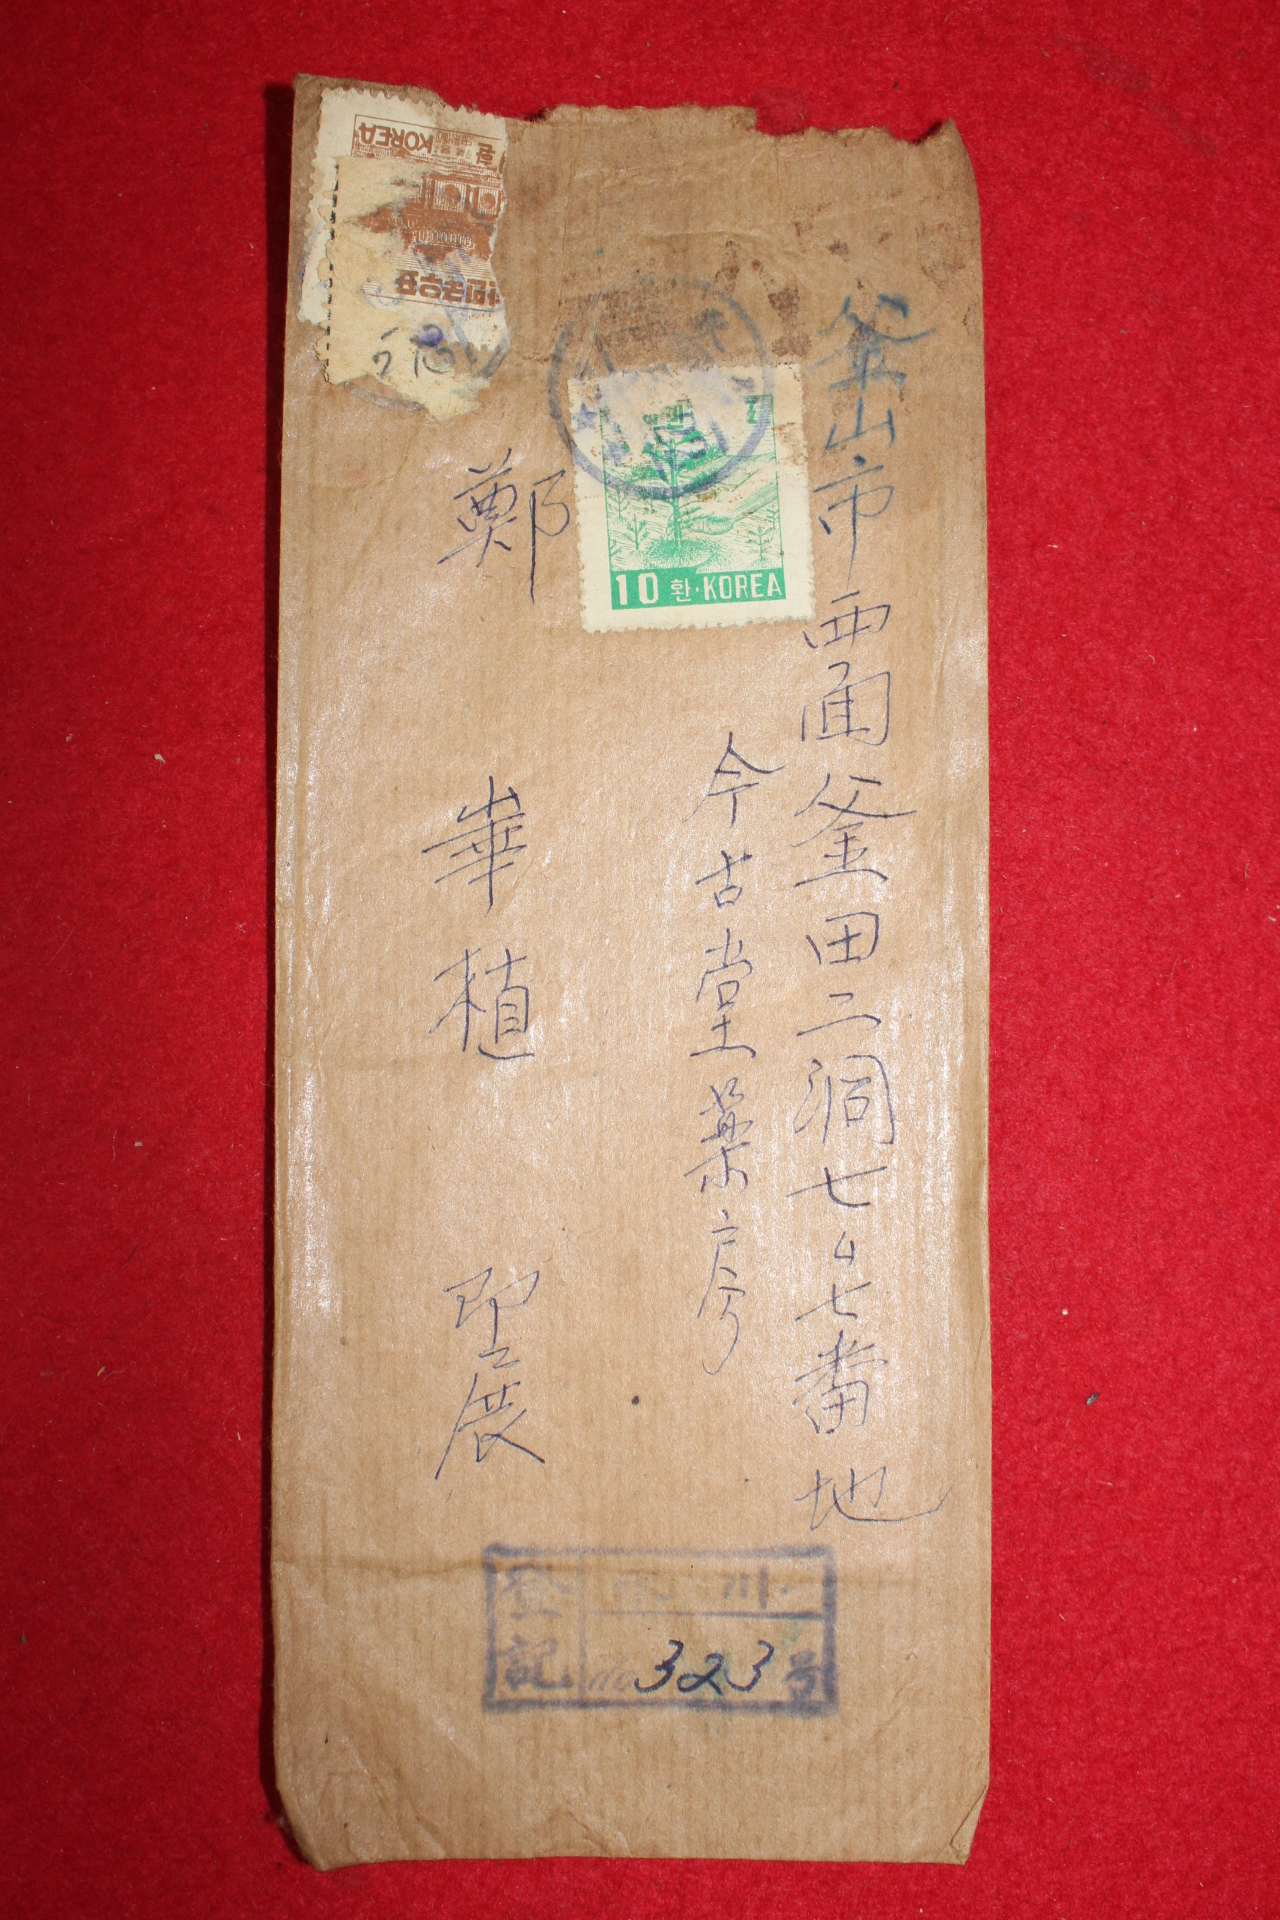 釜山市西面釜田二洞七四七番地
今古堂薬房
鄭華植 即展
10 환·KOREA
KOREA
登記
川
No 323 号